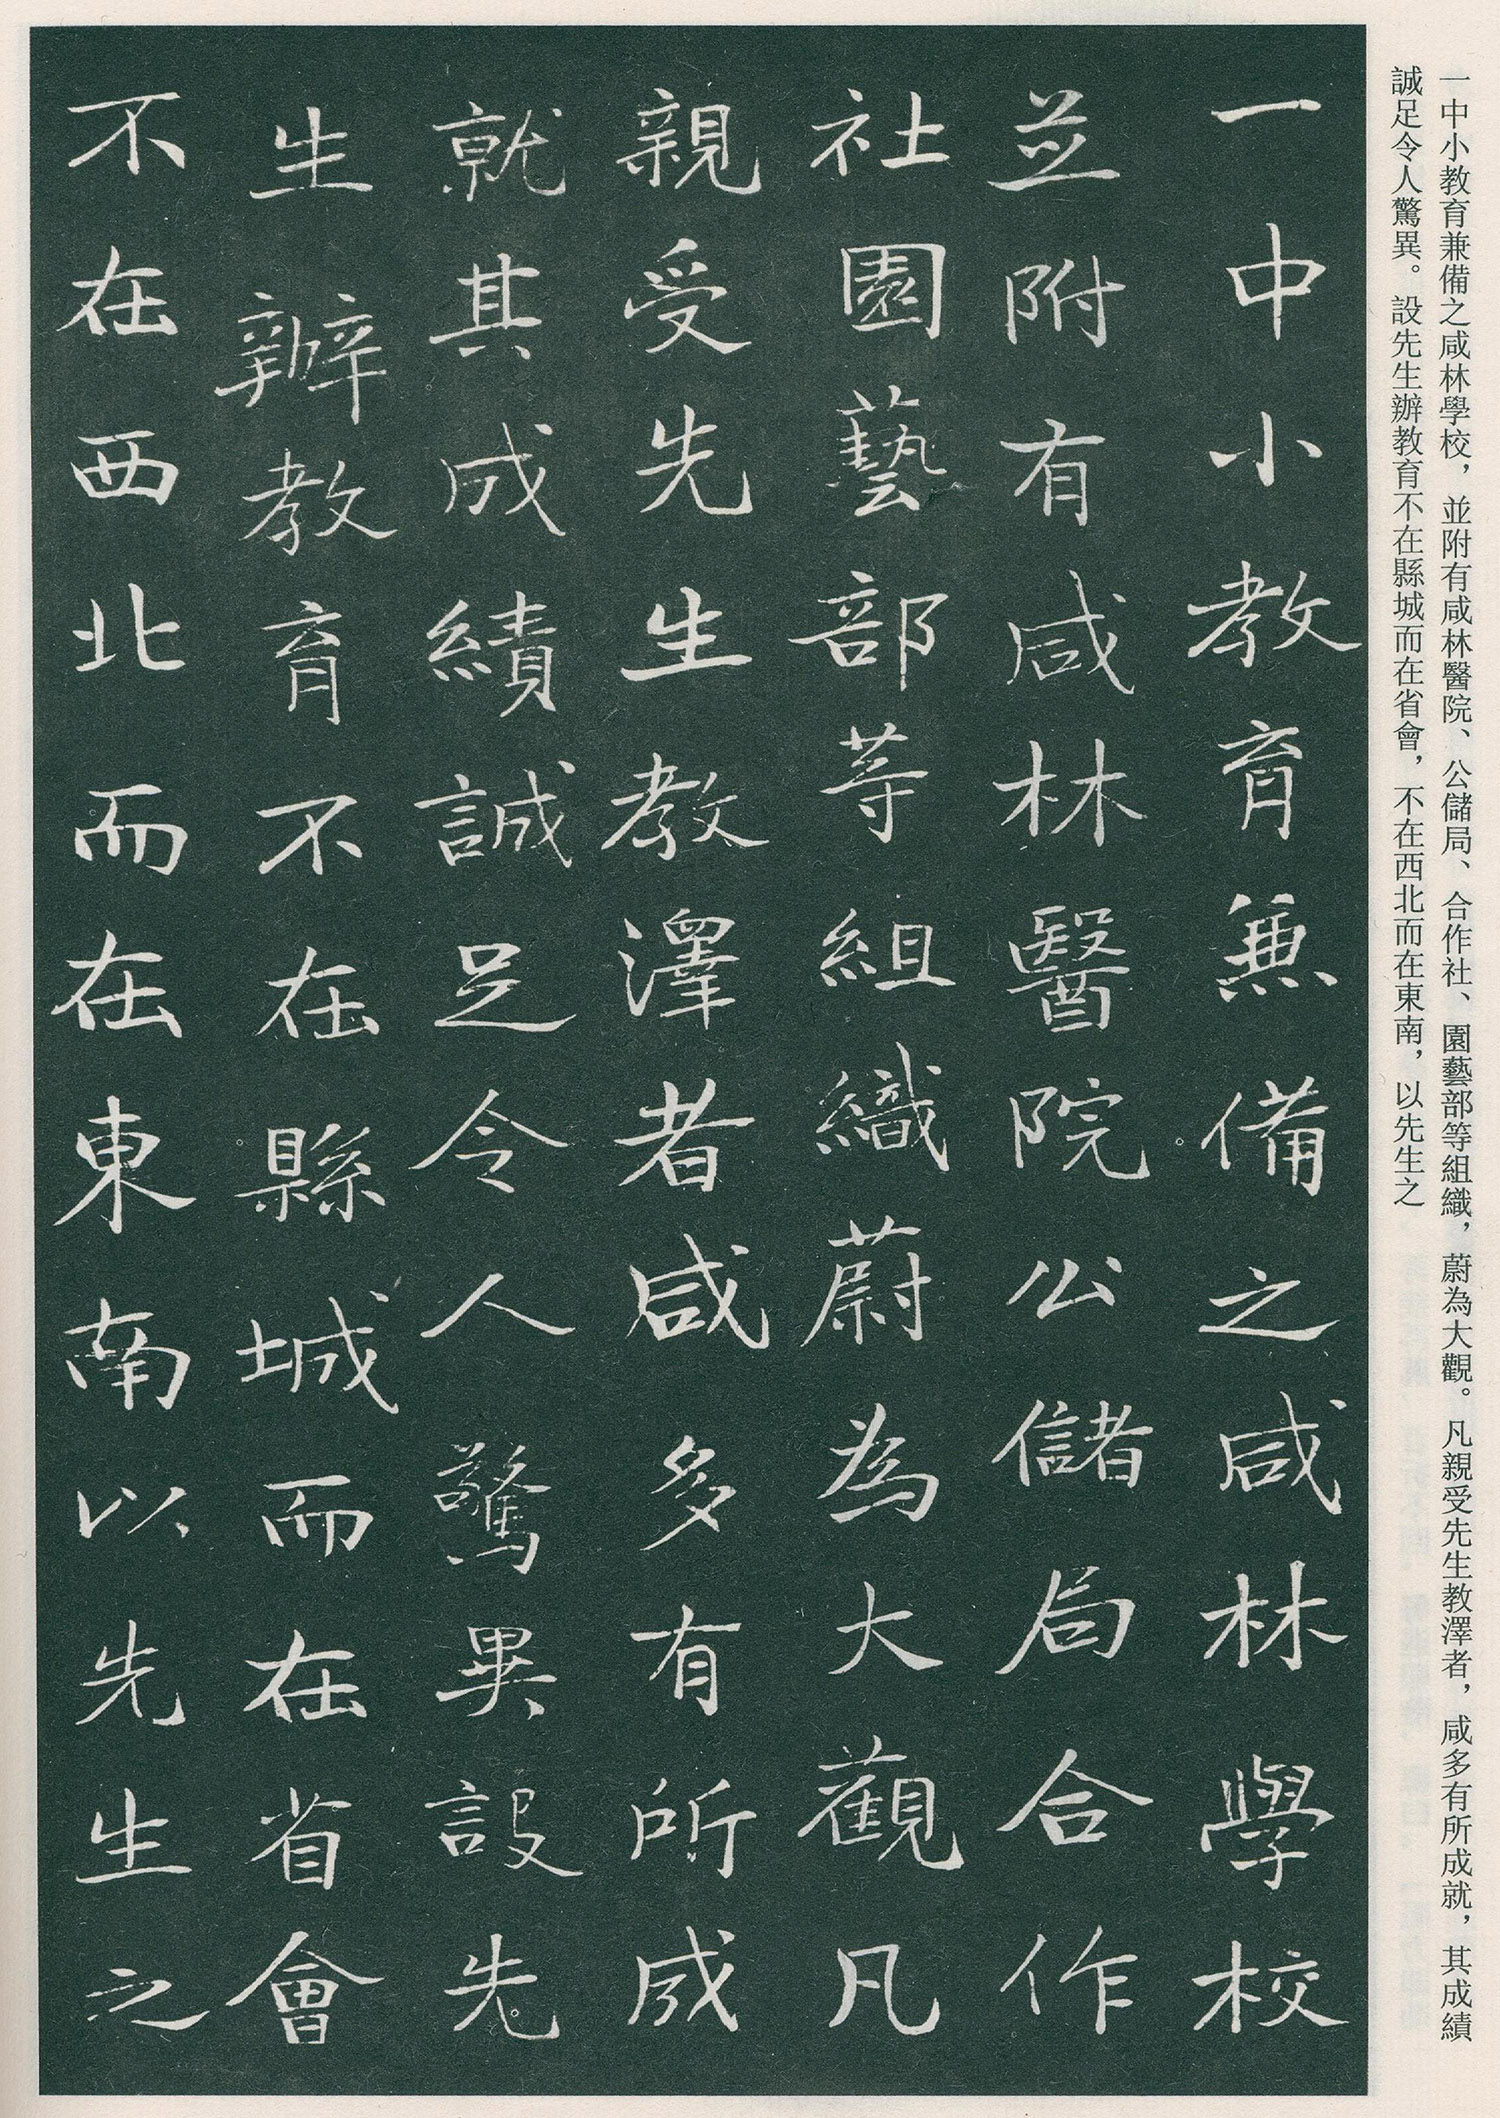 一中小教育兼備之咸林學校，並附有咸林醫院、公儲局、合作社、園藝部等組織，蔚為大觀。凡親受先生教澤者，咸多有所成就，其成績
誠足令人驚異。設先生辦教育不在縣城而在省會，不在西北而在東南，以先生之
一中小教育兼備之咸林學校
並附有咸林醫院公儲局合作
社園藝部等組織蔚為大觀凡
親受先生教澤者咸多有所成
就其成績誠足令人驚異設先
生辦教育不在縣城而在省會
不在西北而在東南以先生之